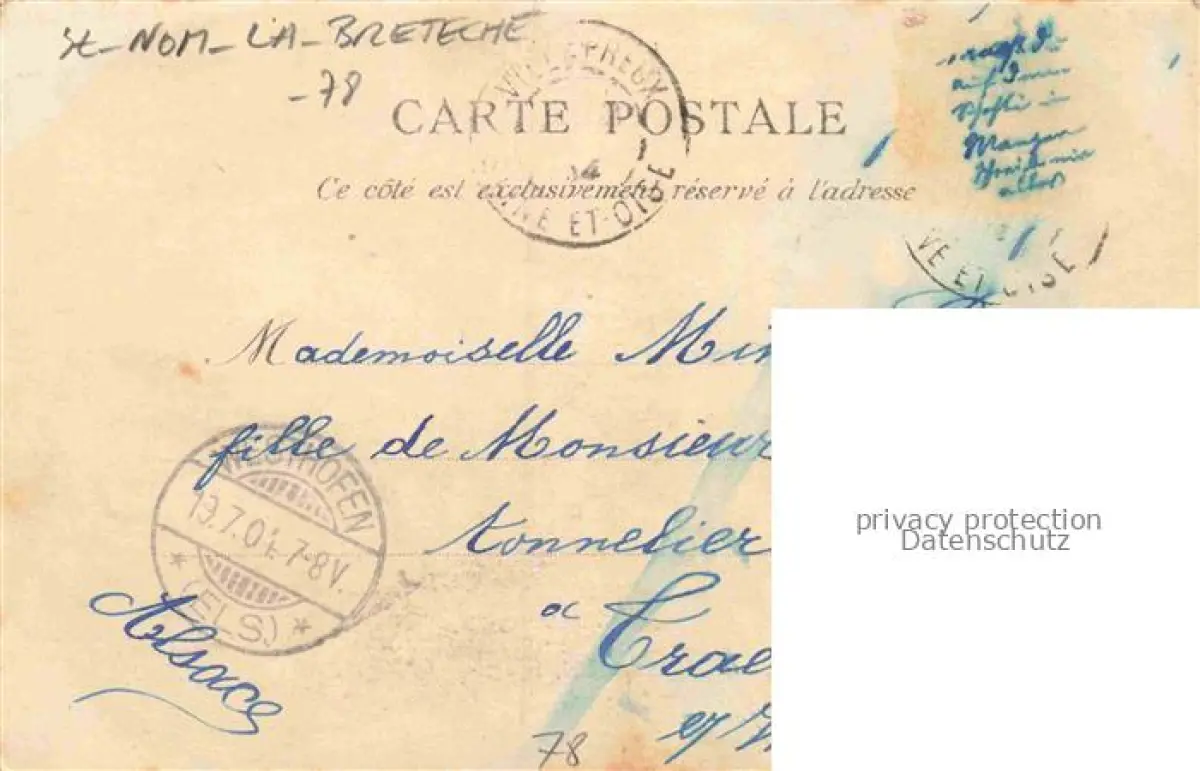 St-NOM-LA-BRETECHE
-78
VILLEPREUX
CARTE POSTALE
Ce côté est exclusivement réservé à l'adresse
ET-OISE
auf
VE ET OISE
Mademoiselle Mi
fille de Monsieur
tonnelier
a Trae
WESTHOFEN
19.7.04. 7-8V.
* (ELS.) *
Alsace
78
privacy protection
Datenschutz